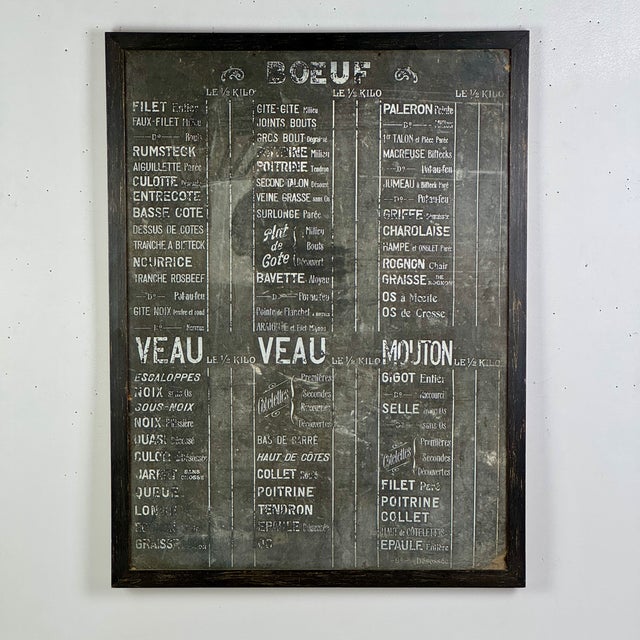 BOEUF
LE ½ KILO
LE ½ KILO
LE ½ KILO
FILET Entier
FAUX-FILET
Do
RUMSTECK
AIGUILLETTE Parée
CULOTTE
ENTRECOTE
BASSE COTE
DESSUS DE COTES
TRANCHE A BIFTECK
NOURRICE
TRANCHE ROSBEEF
Do Pot-au-feu
GITE NOIX
Do
GITE-GITE Milieu
JOINTS BOUTS
GROS BOUT
POITRINE Milieu
POITRINE Tendron
SECOND TALON
VEINE GRASSE sans Os
SURLONGE Parée
Plat de Cote
Milieu
Bouts
Découvert
BAVETTE Aloyau
Do Pot-au-feu
Pointe de Flanchet
ARAIGNÉE
PALERON
Do
1er TALON et Pièce Parée
MACREUSE Biftecks
Do Pot-au-feu
JUMEAU à Bifteck Paré
Do Pot-au-feu
GRIFFE
CHAROLAISE
HAMPE et ONGLET Parée
ROGNON Chair
GRAISSE DE ROGNON
OS à Moelle
OS de Crosse
VEAU
LE ½ KILO
ESCALOPPES
NOIX sans Os
SOUS-NOIX
NOIX
QUASI
CULOT
JARRET SANS CROSSE
QUEUE
GRAISSE
VEAU
LE ½ KILO
Côtelettes
Premières
Secondes
Découvertes
BAS DE CARRÉ
HAUT DE COTES
COLLET
POITRINE
TENDRON
EPAULE
MOUTON
LE ½ KILO
GIGOT Entier
Do Raccourci
SELLE
sans Os
Côtelettes
Premières
Secondes
Découvertes
FILET Paré
POITRINE
COLLET
HAUT de COTELETTES
EPAULE Entière